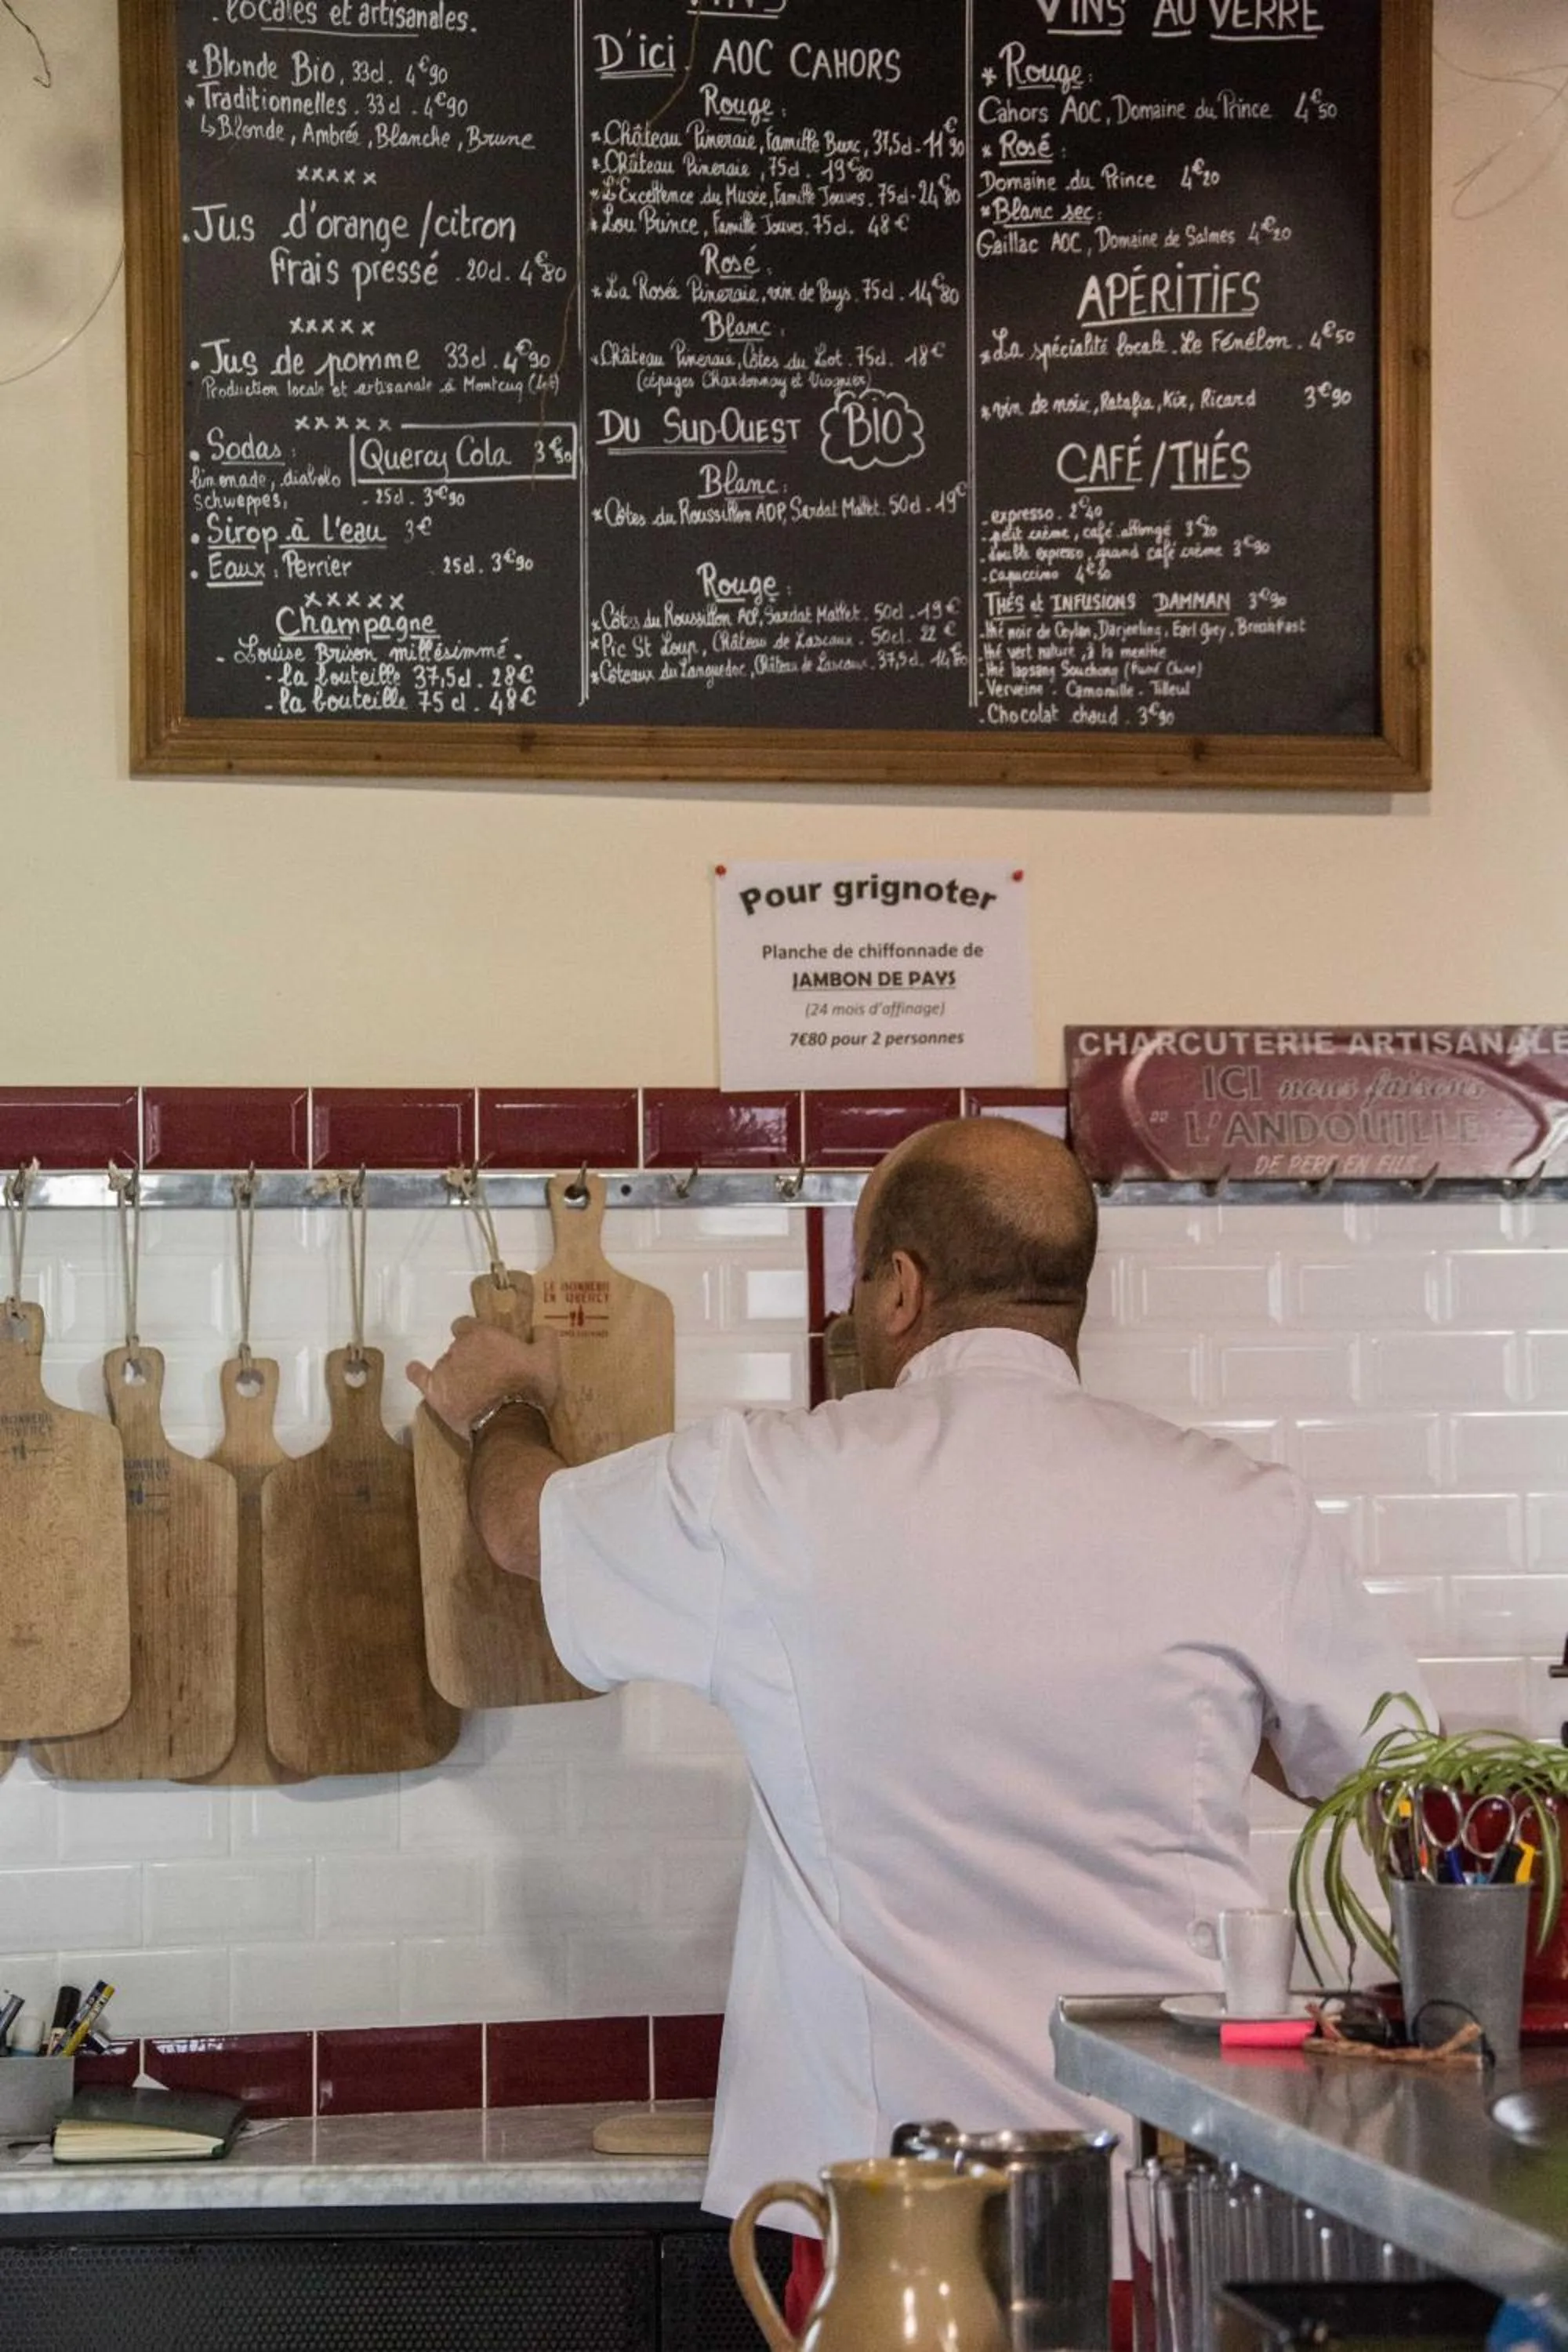 locales et artisanales.
* Blonde Bio, 33cl. 4€90
* Traditionnelles. 33cl. 4€90
↳ Blonde, Ambrée, Blanche, Brune
xxxxx
. Jus d'orange / citron
frais pressé . 20cl. 4€80
xxxxx
. Jus de pomme 33cl. 4€90
Production locale et artisanale à Montcuq (Lot)
xxxxx
. Sodas :
Quercy Cola 3€50
limonade, diabolo
schweppes,
. 25cl. 3€90
. Sirop à l'eau 3€
. Eaux : Perrier . 25cl. 3€90
xxxxx
Champagne
- Louise Brison millésimmé -
- la bouteille 37,5cl . 28€
- la bouteille 75cl . 48€
VINS
D'ici AOC CAHORS
Rouge :
* Château Pineraie, Famille Burc, 37,5cl - 11€90
* Château Pineraie, 75cl. 19€80
* L'Excellence du Musée, Famille Jouves. 75cl - 24€80
* Lou Prince, Famille Jouves. 75cl. 48€
Rosé :
* La Rosée Pineraie, vin de Pays. 75cl . 14€80
Blanc :
* Château Pineraie, Côtes du Lot. 75cl. 18€
(cépages Chardonnay et Viognier)
DU SUD-OUEST BIO
Blanc :
* Côtes du Roussillon AOP, Sardat Mallet. 50cl . 19€
Rouge :
* Côtes du Roussillon AOP, Sardat Mallet. 50cl . 19€
* Pic St Loup, Château de Lascaux. 50cl. 22€
* Coteaux du Languedoc, Château de Lascaux. 37,5cl. 14€80
VINS AU VERRE
* Rouge :
Cahors AOC, Domaine du Prince 4€50
* Rosé :
Domaine du Prince 4€20
* Blanc sec :
Gaillac AOC, Domaine de Salmes 4€20
APÉRITIFS
* La spécialité locale. Le Fénélon. 4€50
* vin de noix, Ratafia, Kir, Ricard 3€90
CAFÉ / THÉS
- expresso . 2€40
- petit crème, café allongé 3€20
- double expresso, grand café crème 3€90
- capuccino 4€80
THÉS et INFUSIONS DAMMAN 3€90
- thé noir de Ceylan, Darjeeling, Earl Grey, Breakfast
- thé vert nature, à la menthe
- thé lapsang Souchong (Fumé Chine)
- Verveine - Camomille - Tilleul
- Chocolat chaud . 3€90
Pour grignoter
Planche de chiffonnade de
JAMBON DE PAYS
(24 mois d'affinage)
7€80 pour 2 personnes
CHARCUTERIE ARTISANALE
ICI nous faisons
L'ANDOUILLE
DE PERE EN FILS
EN QUERCY